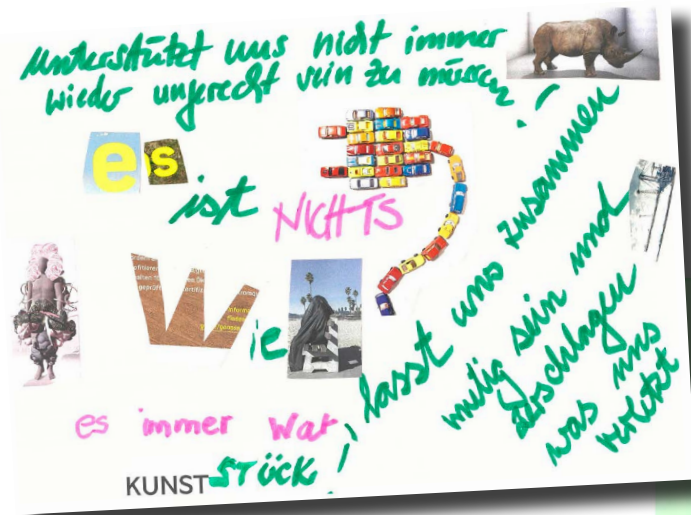 unterstützt uns nicht immer
wieder ungerecht sein zu müssen!
es
ist NICHTS
Wie
es immer war,
KUNSTSTÜCK!
lasst uns zusammen
mutig sein und
zerschlagen
was uns
verletzt